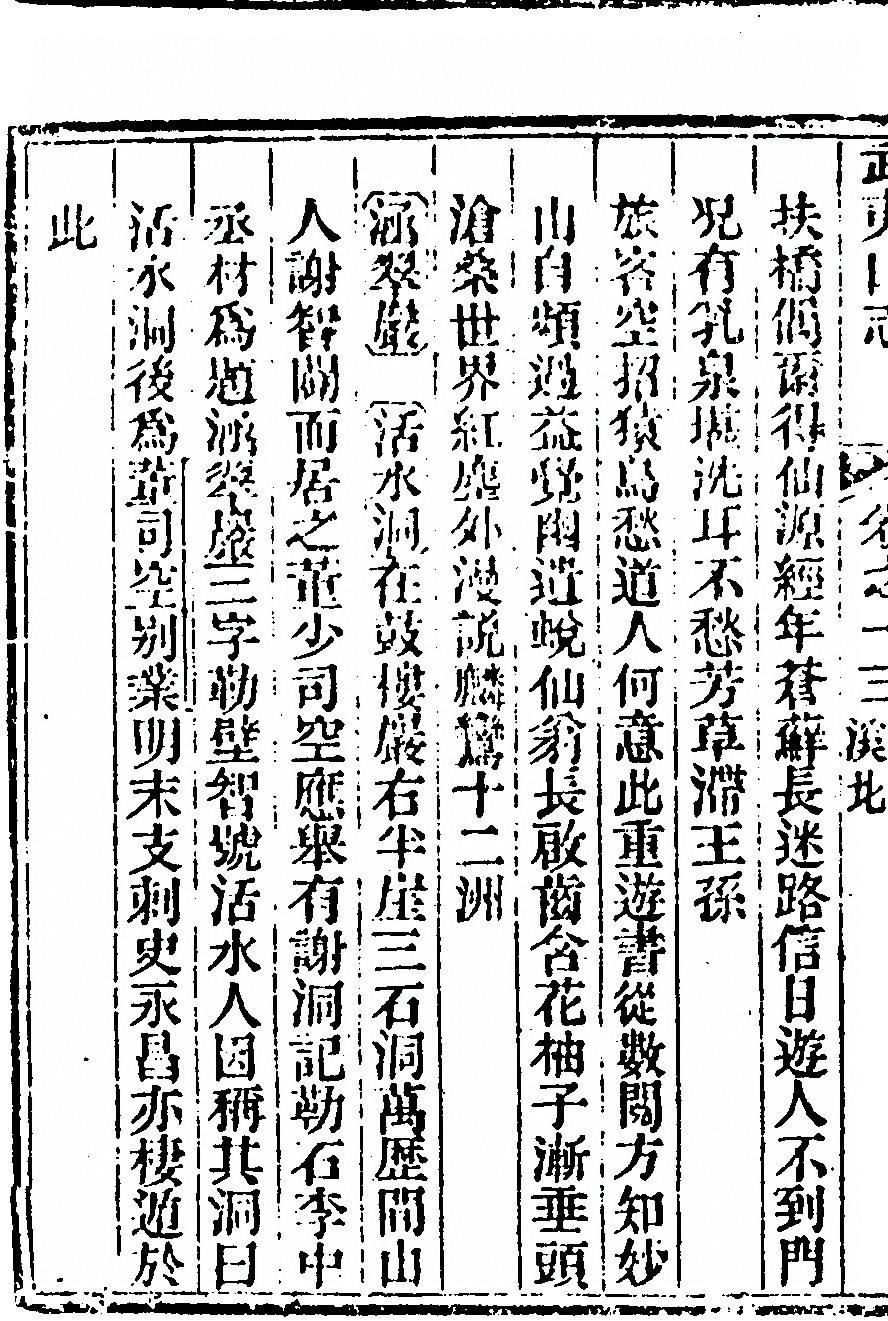 武夷山志 卷之十三 溪北
扶橋偶爾得仙源經年蒼蘚長迷路信日遊人不到門
况有乳泉堪洗耳不愁芳草滯王孫
旅客空招猿鳥愁道人何意此重遊書從數閱方知妙
山自頻過益覺幽遺蛻仙翁長啟齒含花柚子漸垂頭
滄桑世界紅塵外漫說麟鸞十二洲
涵翠巖 活水洞在鼓樓巖右半崖三石洞萬歷間山
人謝智闢而居之董少司空應舉有謝洞記勒石李中
丞材爲題涵翠巖三字勒壁智號活水人因稱其洞曰
活水洞後爲董司空别業明末支刺史永昌亦棲遁於
此